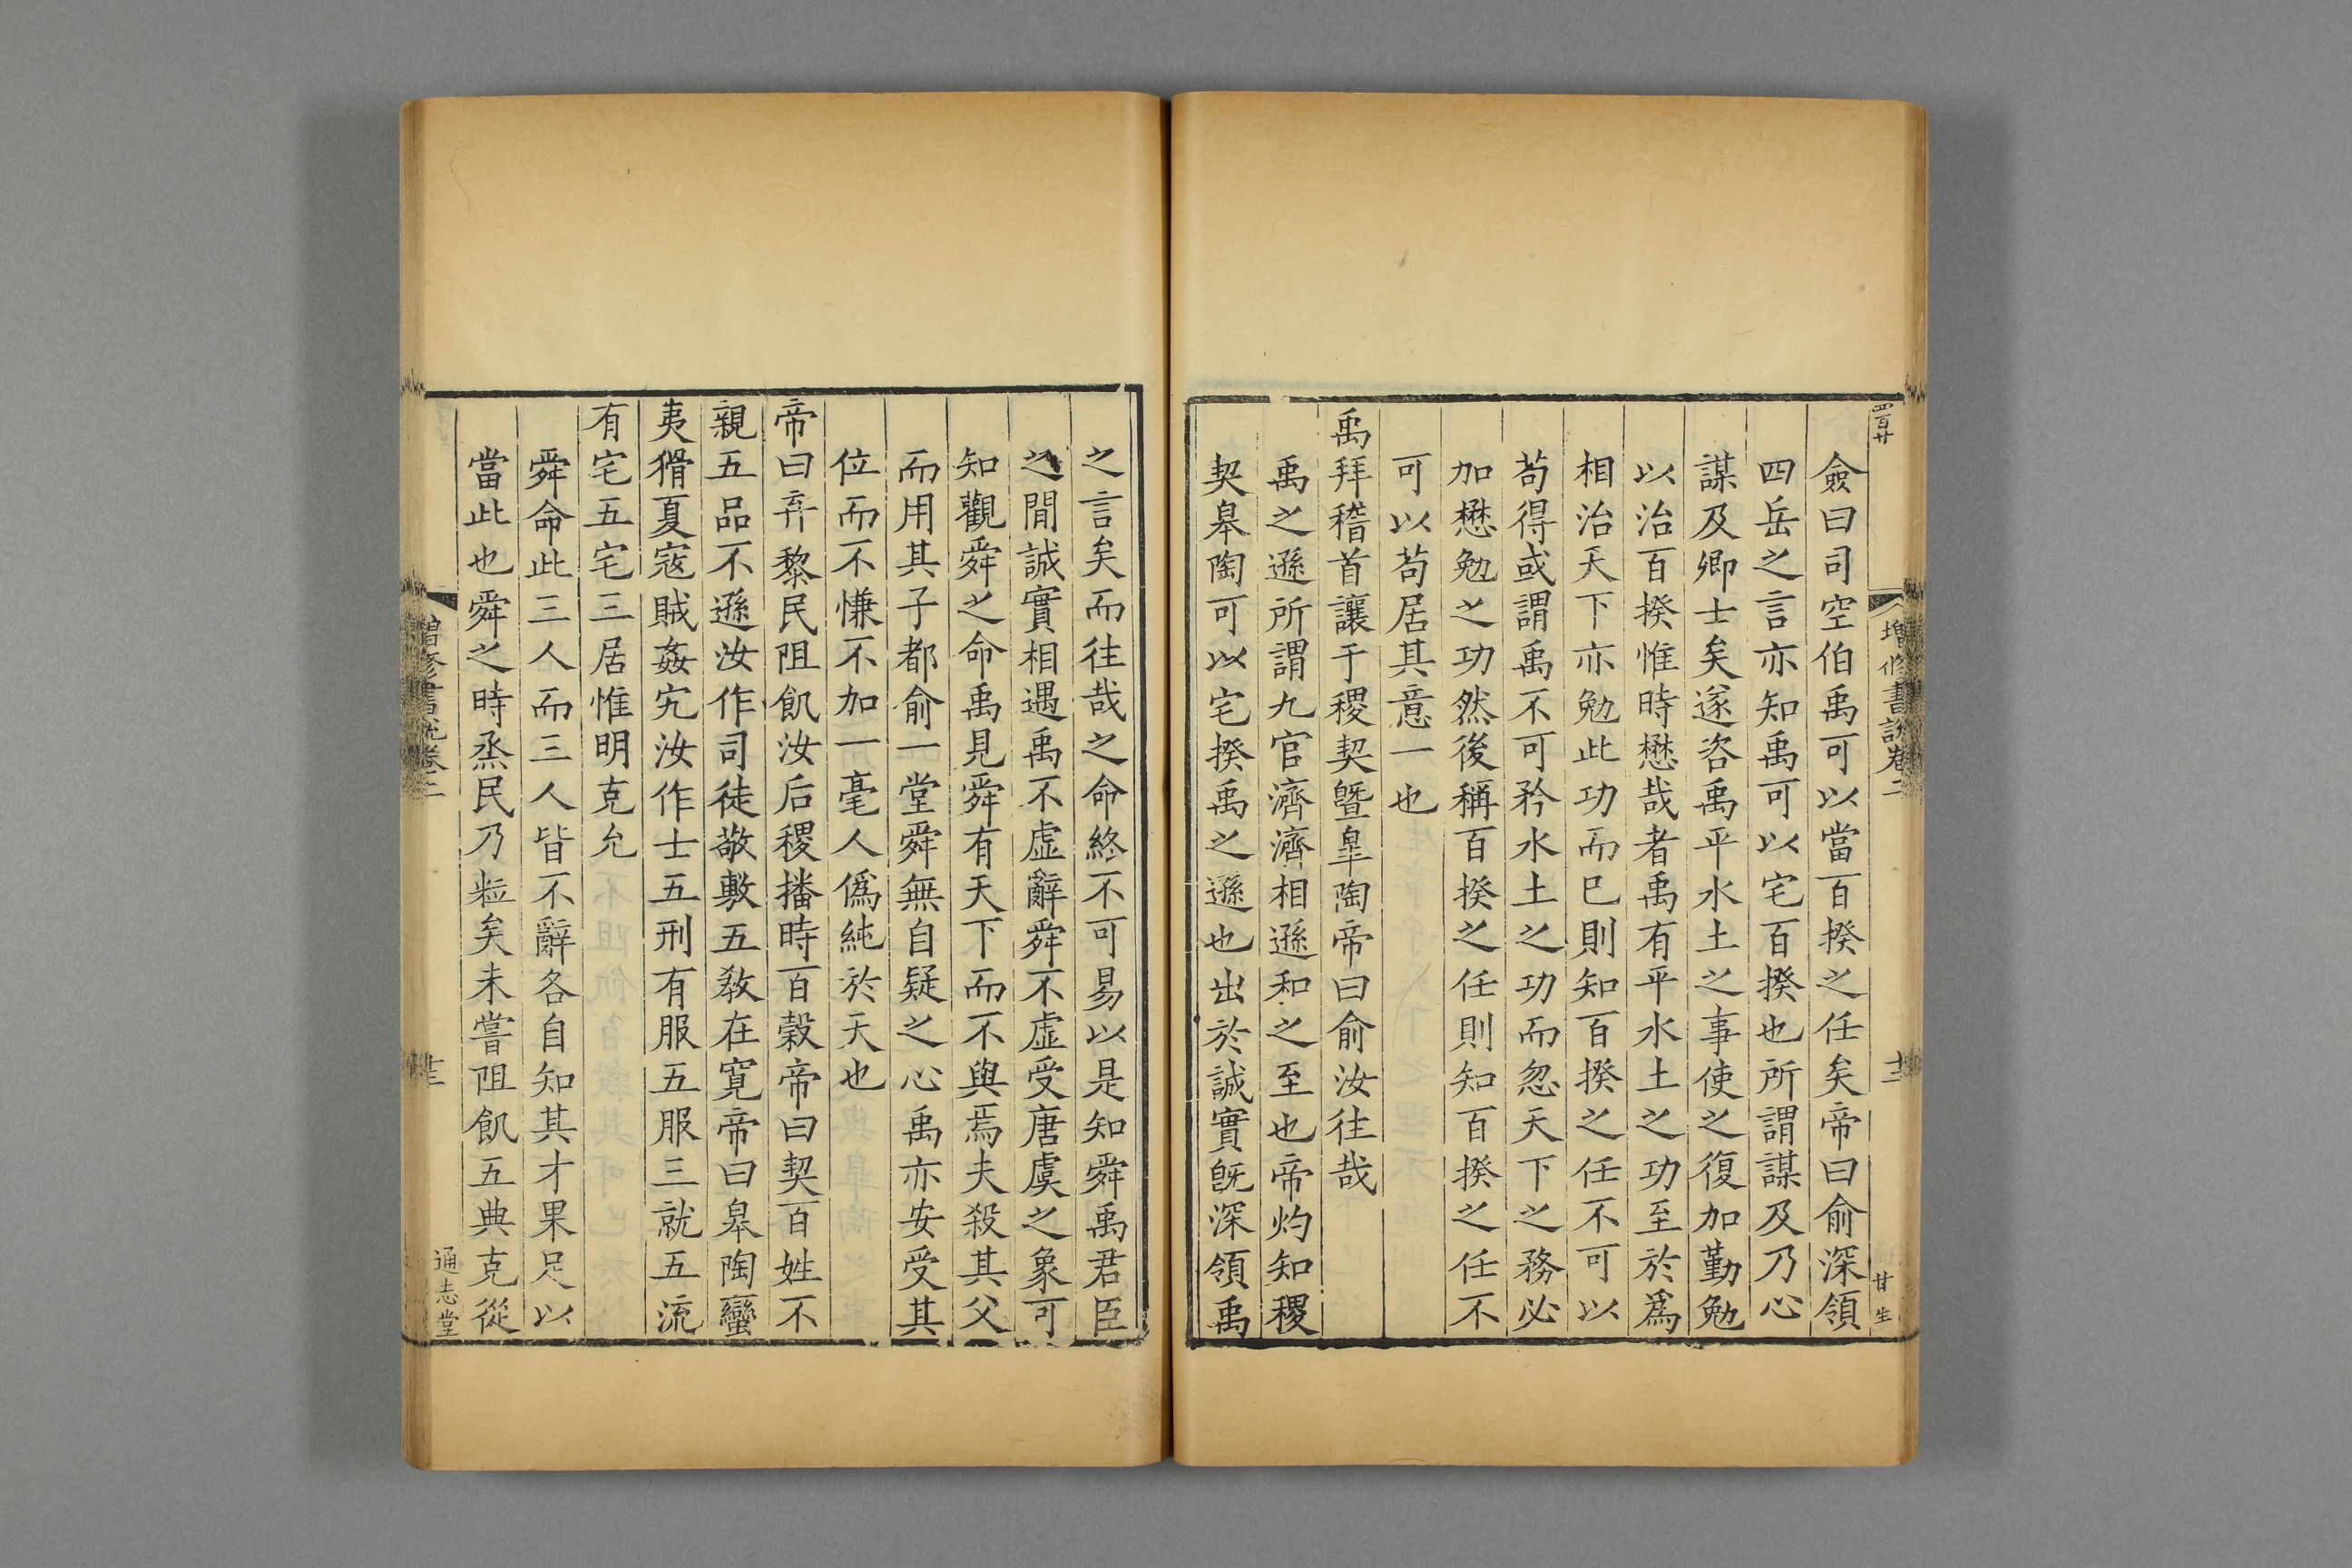 四百廿
增修書說卷二
十二
甘生
僉曰司空伯禹可以當百揆之任矣帝曰俞深領
四岳之言亦知禹可以宅百揆也所謂謀及乃心
謀及卿士矣遂咨禹平水土之事使之復加勤勉
以治百揆惟時懋哉者禹有平水土之功至於爲
相治天下亦勉此功而已則知百揆之任不可以
苟得或謂禹不可矜水土之功而忽天下之務必
加懋勉之功然後稱百揆之任則知百揆之任不
可以苟居其意一也
禹拜稽首讓于稷契曁臯陶帝曰俞汝往哉
禹之遜所謂九官濟濟相遜和之至也帝灼知稷
契皋陶可以宅揆禹之遜也出於誠實旣深領禹
之言矣而往哉之命終不可易以是知舜禹君臣
之間誠實相遇禹不虛辭舜不虛受唐虞之象可
知觀舜之命禹見舜有天下而不與焉夫殺其父
而用其子都俞一堂舜無自疑之心禹亦安受其
位而不慊不加一毫人僞純於天也
帝曰弃黎民阻飢汝后稷播時百穀帝曰契百姓不
親五品不遜汝作司徒敬敷五教在寬帝曰皋陶蠻
夷猾夏寇賊姦宄汝作士五刑有服五服三就五流
有宅五宅三居惟明克允
舜命此三人而三人皆不辭各自知其才果足以
當此也舜之時烝民乃粒矣未嘗阻飢五典克從
增修書說卷二
十二
通志堂